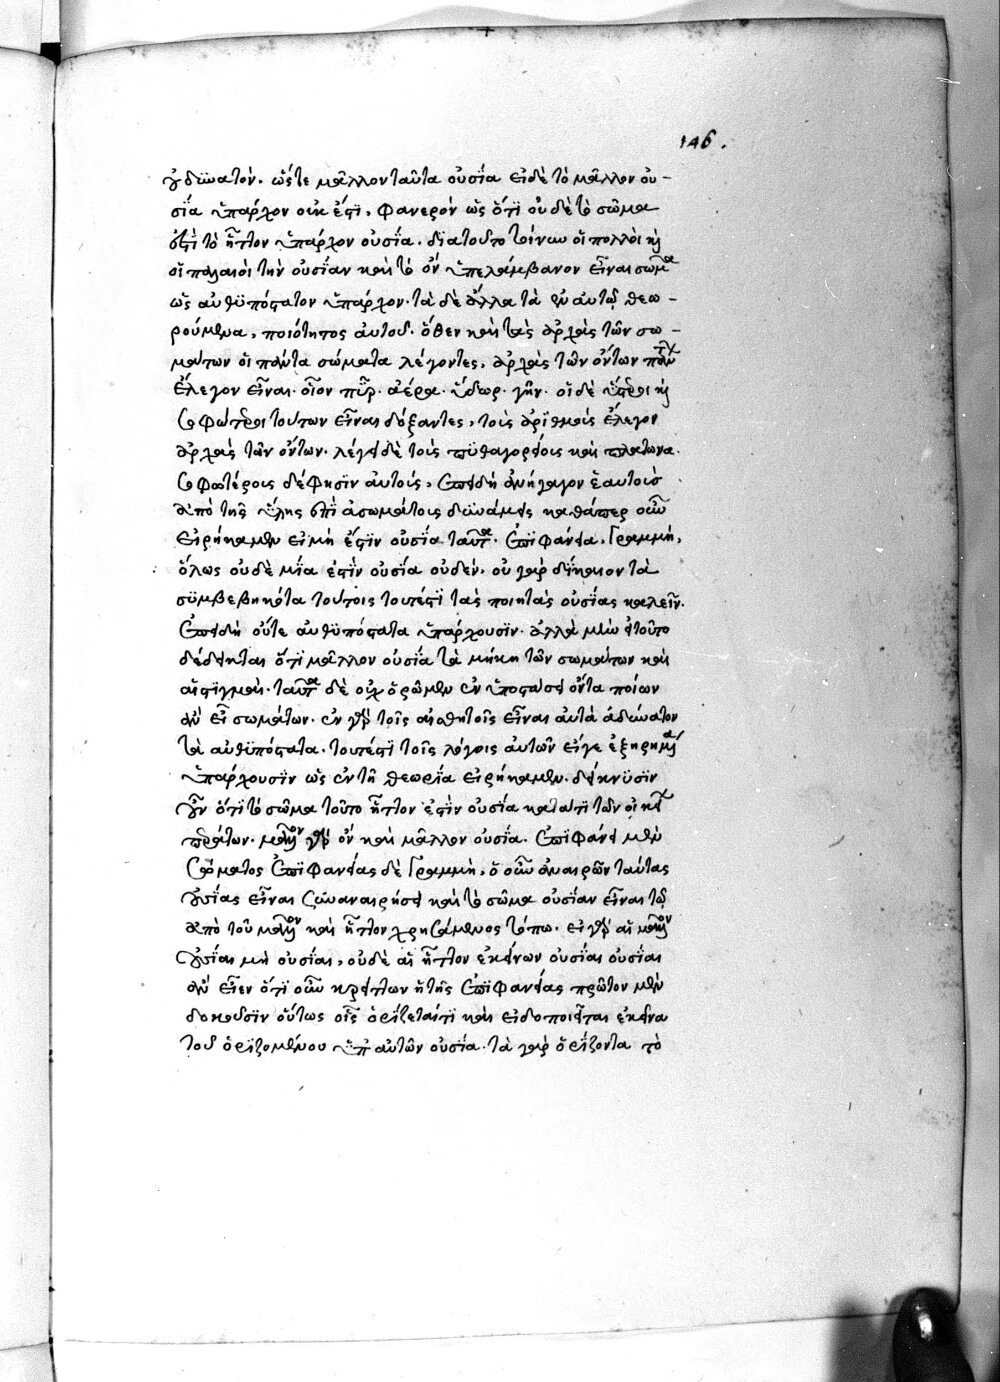 146.
οὐ δυνατόν. ὥστε μᾶλλον ταῦτα οὐσία εἰ δὲ τὸ μᾶλλον οὐ-
σία ὑπάρχον οὐκ ἔστι, φανερὸν ὡς ὅτι οὐδὲ τὸ σῶμα
ἐστὶ τὸ ἧττον ὑπάρχον οὐσία. διατοῦτο τοίνυν οἱ πολλοὶ καὶ
οἱ παλαιοὶ τὴν οὐσίαν καὶ τὸ ὂν ὑπελάμβανον εἶναι σῶμα
ὡς αὐθυπόστατον ὑπάρχον. τὰ δὲ ἄλλα τὰ ἐν αὐτῷ θεω-
ρούμενα, ποιότητος αὐτοῦ. ὅθεν καὶ τὰς ἀρχὰς τῶν σω-
μάτων οἱ πάντα σώματα λέγοντες, ἀρχὰς τῶν ὄντων πάντων
ἔλεγον εἶναι. οἷον πῦρ. ἀέρα. ὕδωρ. γῆν. οἱ δὲ ὕστεροι καὶ
σοφώτεροι τούτων εἶναι δόξαντες, τοὺς ἀριθμοὺς ἔλεγον
ἀρχὰς τῶν ὄντων. λέγει δὲ τοὺς πυθαγορείους καὶ πλάτωνα.
σοφωτέροις δέ φησιν αὐτοὺς, ἐπειδὴ ἀνήγαγον ἑαυτοὺς
ἀπὸ τῆς ὕλης ἐπὶ ἀσωμάτοις δυνάμεις καθάπερ οὖν
εἰρήκαμεν εἰ μὴ ἔστιν οὐσία ταῦτα. ἐπιφάνεια, γραμμή,
ὅλως οὐδὲ μία ἐστὶν οὐσία οὐδέν. οὐ γὰρ δίκαιον τὰ
συμβεβηκότα τούτοις τουτέστι τὰς ποιητὰς οὐσίας καλεῖν.
ἐπειδὴ οὔτε αὐθυπόστατα ὑπάρχουσιν. ἀλλὰ μὴν εἰ τοῦτο
δέδεικται ὅτι μᾶλλον οὐσία τὰ μήκη τῶν σωμάτων καὶ
αἱ στιγμαὶ. ταῦτα δὲ οὐχ ὁρῶμεν ἐν ὑποστάσει ὄντα ποίων
ἂν εἴη σωμάτων. ἐν γὰρ τοῖς αἰσθητοῖς εἶναι αὐτὰ ἀδύνατον
τὰ αὐθυπόστατα. τουτέστι τοῖς λόγοις αὐτῶν εἴγε ἐξηρημένα
ὑπάρχουσιν ὡς ἐν τῇ θεωρία εἰρήκαμεν. δείκνυσιν
οὖν ὅτι τὸ σῶμα τοῦτο ἧττον ἐστὶν οὐσία
μᾶλλον γὰρ ὂν καὶ μᾶλλον οὐσία. ἐπιφάνεια μὲν
σώματος ἐπιφανείας δὲ γραμμή. ὁ οὖν ἀναιρῶν ταύτας
οὐσίας εἶναι συναναιρήσει καὶ τὸ σῶμα οὐσίαν εἶναι τῷ
ἀπὸ τοῦ μᾶλλον καὶ ἧττον χρησάμενος τόπω. εἰ γὰρ αἱ μᾶλλον
οὐσίαι μὴ οὐσίαι, οὐδὲ αἱ ἧττον ἐκείνων οὐσίαι οὐσίαι
ἂν εἶεν ὅτι οὖν κρείττων ἡ τῆς ἐπιφανείας πρῶτον μὲν
δοκοῦσιν οὕτως οἷς ὁρίζεταί τι καὶ εἰδοποιεῖται ἐκεῖνα
τοῦ ὁριζομένου ὑπ αὐτῶν οὐσία. τὰ γὰρ ὁρίζοντα τὸ